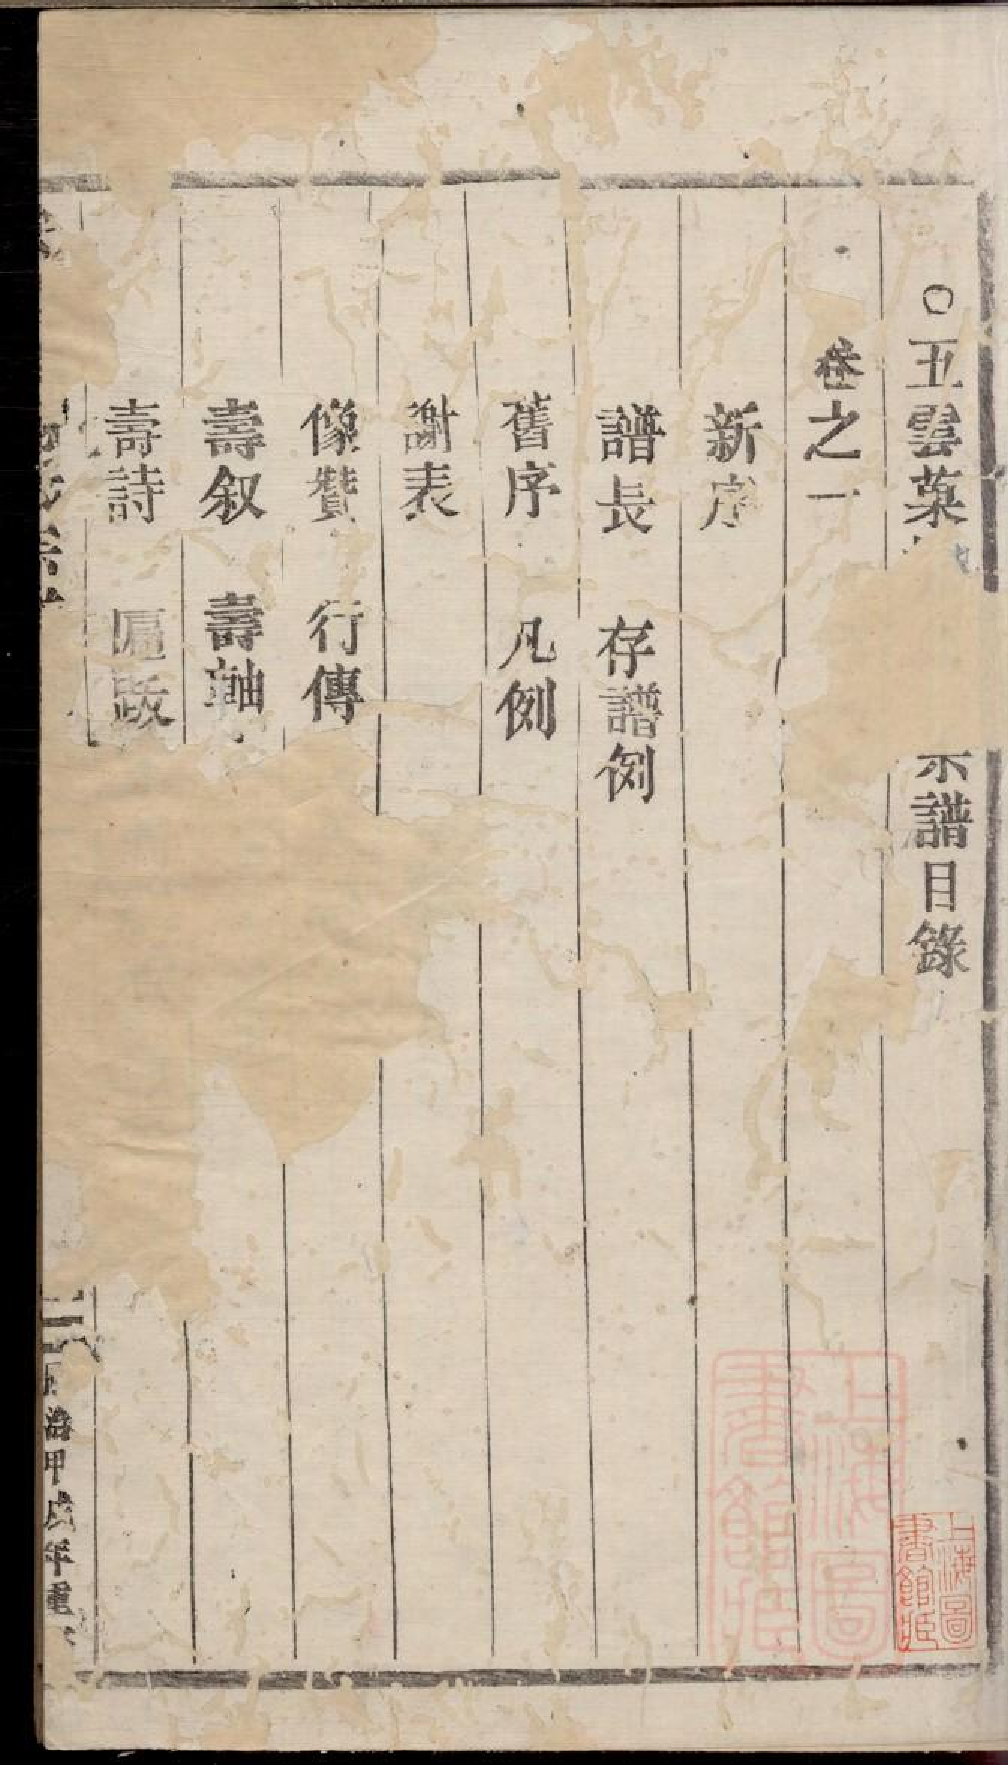 ○五雲菓
宗譜目錄
卷之一
新序
譜長 存譜例
舊序 凡例
謝表
像贊 行傳
壽叙 壽軸
壽詩 匾跋
治甲戌年重
上海圖書館藏
上海圖書館藏